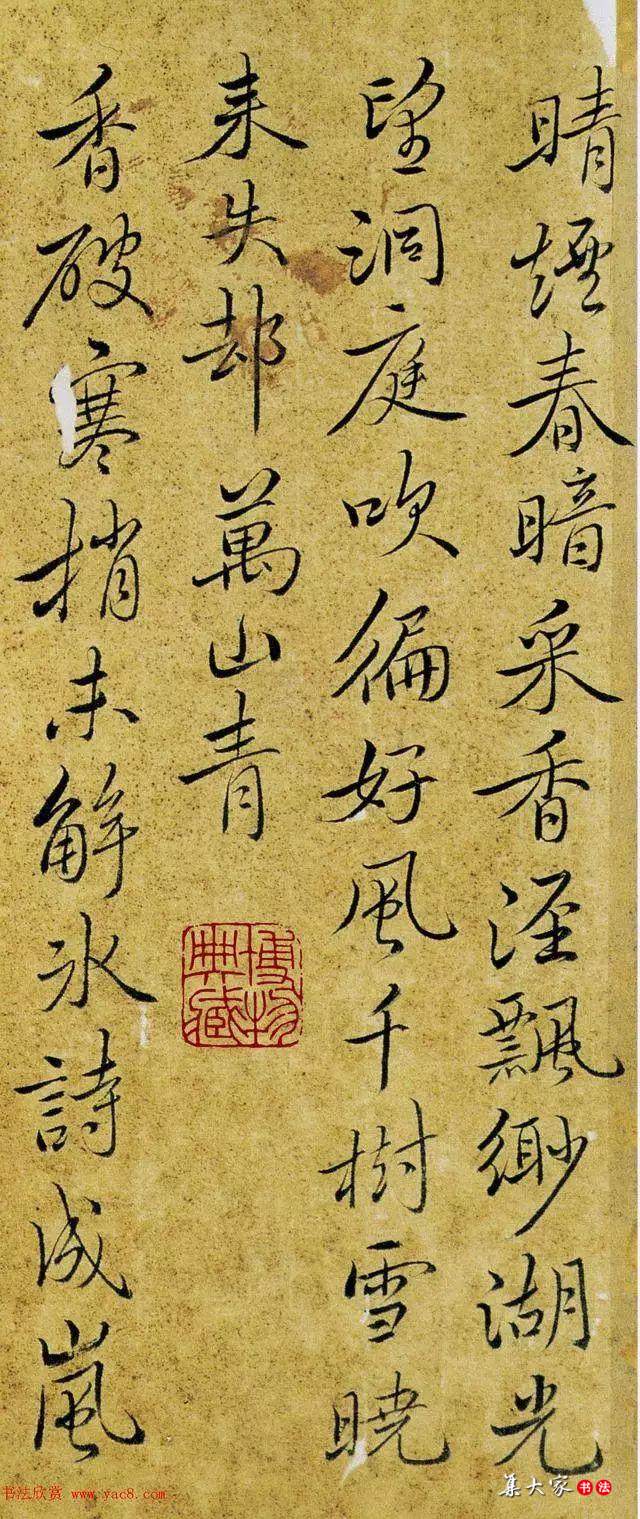 晴煙春暗采香涇飄緲湖光
望洞庭吹徧好風千樹雪曉
来失却萬山青
香破寒梢未解冰詩成嵐
博物典藏
书法欣赏 www.yac8.com
集大家书法